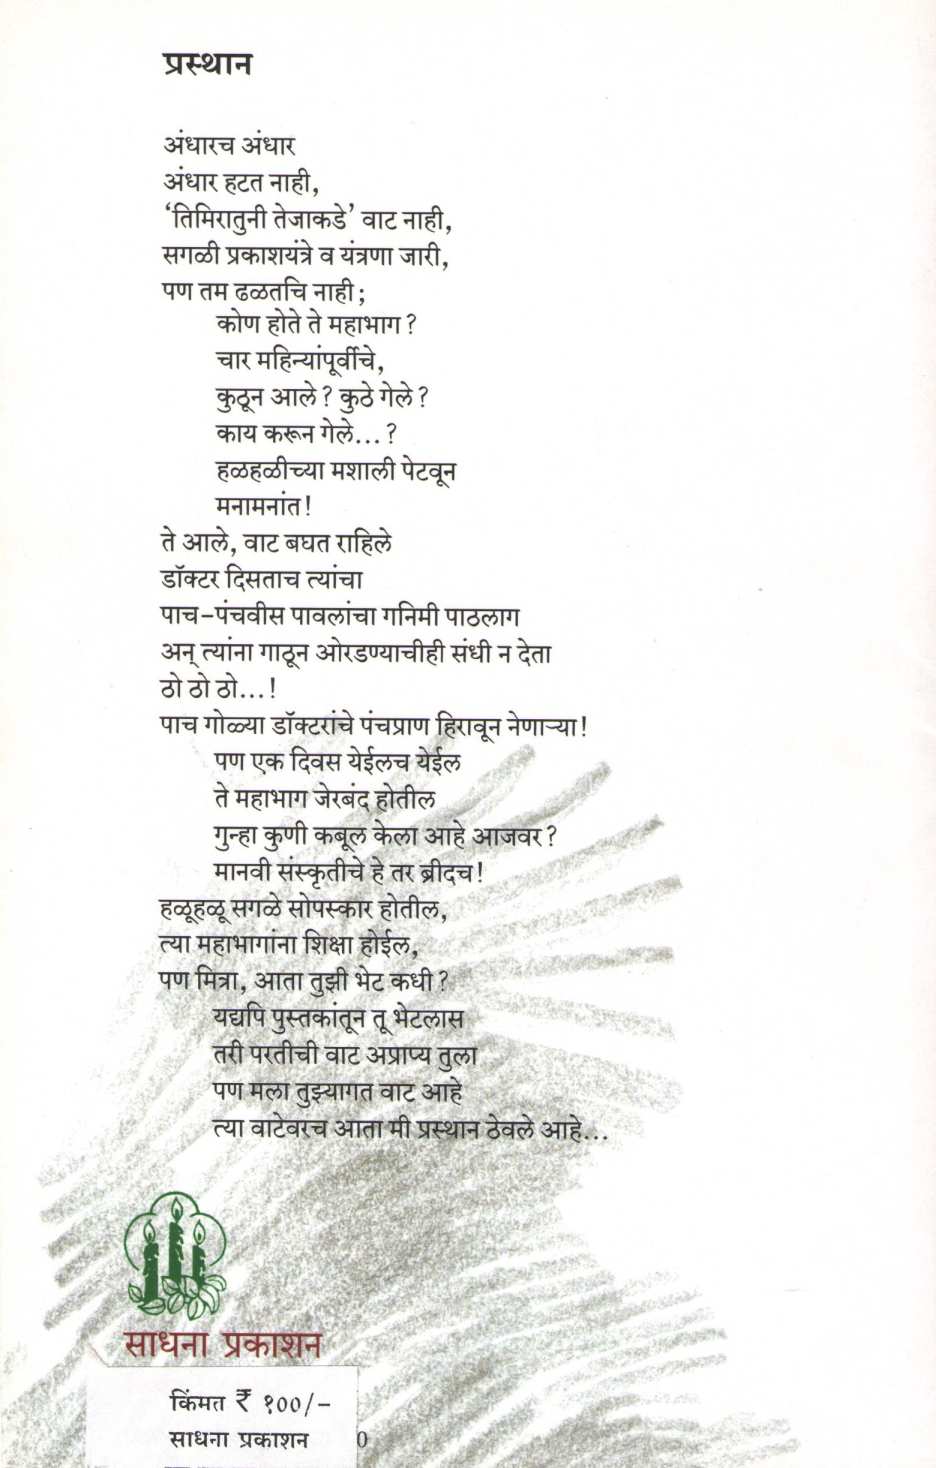 प्रस्थान
अंधारच अंधार
अंधार हटत नाही,
‘तिमिरातुनी तेजाकडे’ वाट नाही,
सगळी प्रकाशयंत्रे व यंत्रणा जारी,
पण तम ढळतचि नाही;
कोण होते ते महाभाग?
चार महिन्यांपूर्वीचे,
कुठून आले? कुठे गेले?
काय करून गेले...?
हळहळीच्या मशाली पेटवून
मनामनांत!
ते आले, वाट बघत राहिले
डॉक्टर दिसताच त्यांचा
पाच-पंचवीस पावलांचा गनिमी पाठलाग
अन् त्यांना गाठून ओरडण्याचीही संधी न देता
ठो ठो ठो...!
पाच गोळ्या डॉक्टरांचे पंचप्राण हिरावून नेणाऱ्या!
पण एक दिवस येईलच येईल
ते महाभाग जेरबंद होतील
गुन्हा कुणी कबूल केला आहे आजवर?
मानवी संस्कृतीचे हे तर ब्रीदच!
हळूहळू सगळे सोपस्कार होतील,
त्या महाभागांना शिक्षा होईल,
पण मित्रा, आता तुझी भेट कधी?
यद्यपि पुस्तकांतून तू भेटलास
तरी परतीची वाट अप्राप्य तुला
पण मला तुझ्यागत वाट आहे
त्या वाटेवरच आता मी प्रस्थान ठेवले आहे...
साधना प्रकाशन
किंमत ₹ १००/-
साधना प्रकाशन 0